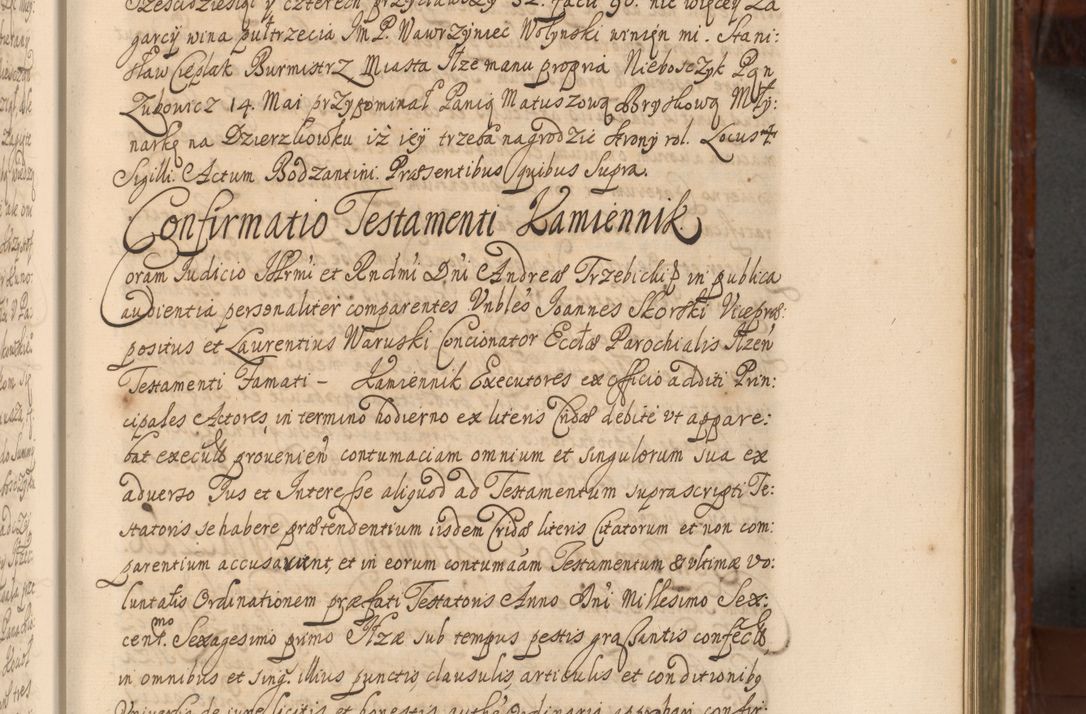 Sześcdziesiąt y czterech przyciawszy 32. facit 96. nic więcey za
garcy wina pułtrzecia Im P. Wawrzyniec Wołynski winien mi. Stani:
sław Cieplak Burmistrz Miasta Ilze manu propria Nieboszczyk Pan
Zubowicz 14. Mai przypominał Panią Matuszową Bryskową Mły:
narkę na Dzierzkowku iż iey trzeba nagrodzić strony rol. Locus
Sigilli. Actum Bodzantini. Præsentibus quibus Supra.
Confirmatio Testamenti Kamiennik.
Coram Iudicio Illrmi et Rndmi Dni Andreæ Trzebicki in publica
audientia personaliter comparentes Vnbles Joannes Skorski Vicepræ:
positus et Laurentius Waruski Concionator Ecclæ Parochialis Ilzen
Testamenti Famati – Kamiennik Executores ex officio additi Prin:
cipales Actores, in termino hodierno ex literis Cridæ debite vt appare:
bat execut provenien contumaciam omnium et singulorum sua ex
adverso Jus et Interesse aliquod ad Testamentum suprascripti Te:
statoris se habere prætendentium iisdem Cridæ literis Citatorum et non com:
parentium accusarunt, et in eorum contumaām Testamentum & vltimæ Vo:
luntatis Ordinationem præfati Testatoris Anno Dni Millesimo Sex:
centmo. Sexagesimo primo Ilzæ sub tempus pestis grassantis confect,
in omnibus et sing. illius punctis, clausulis, articulis et conditionibq
Universis de iure licitis et honestis auth ordinaria approbari confir: